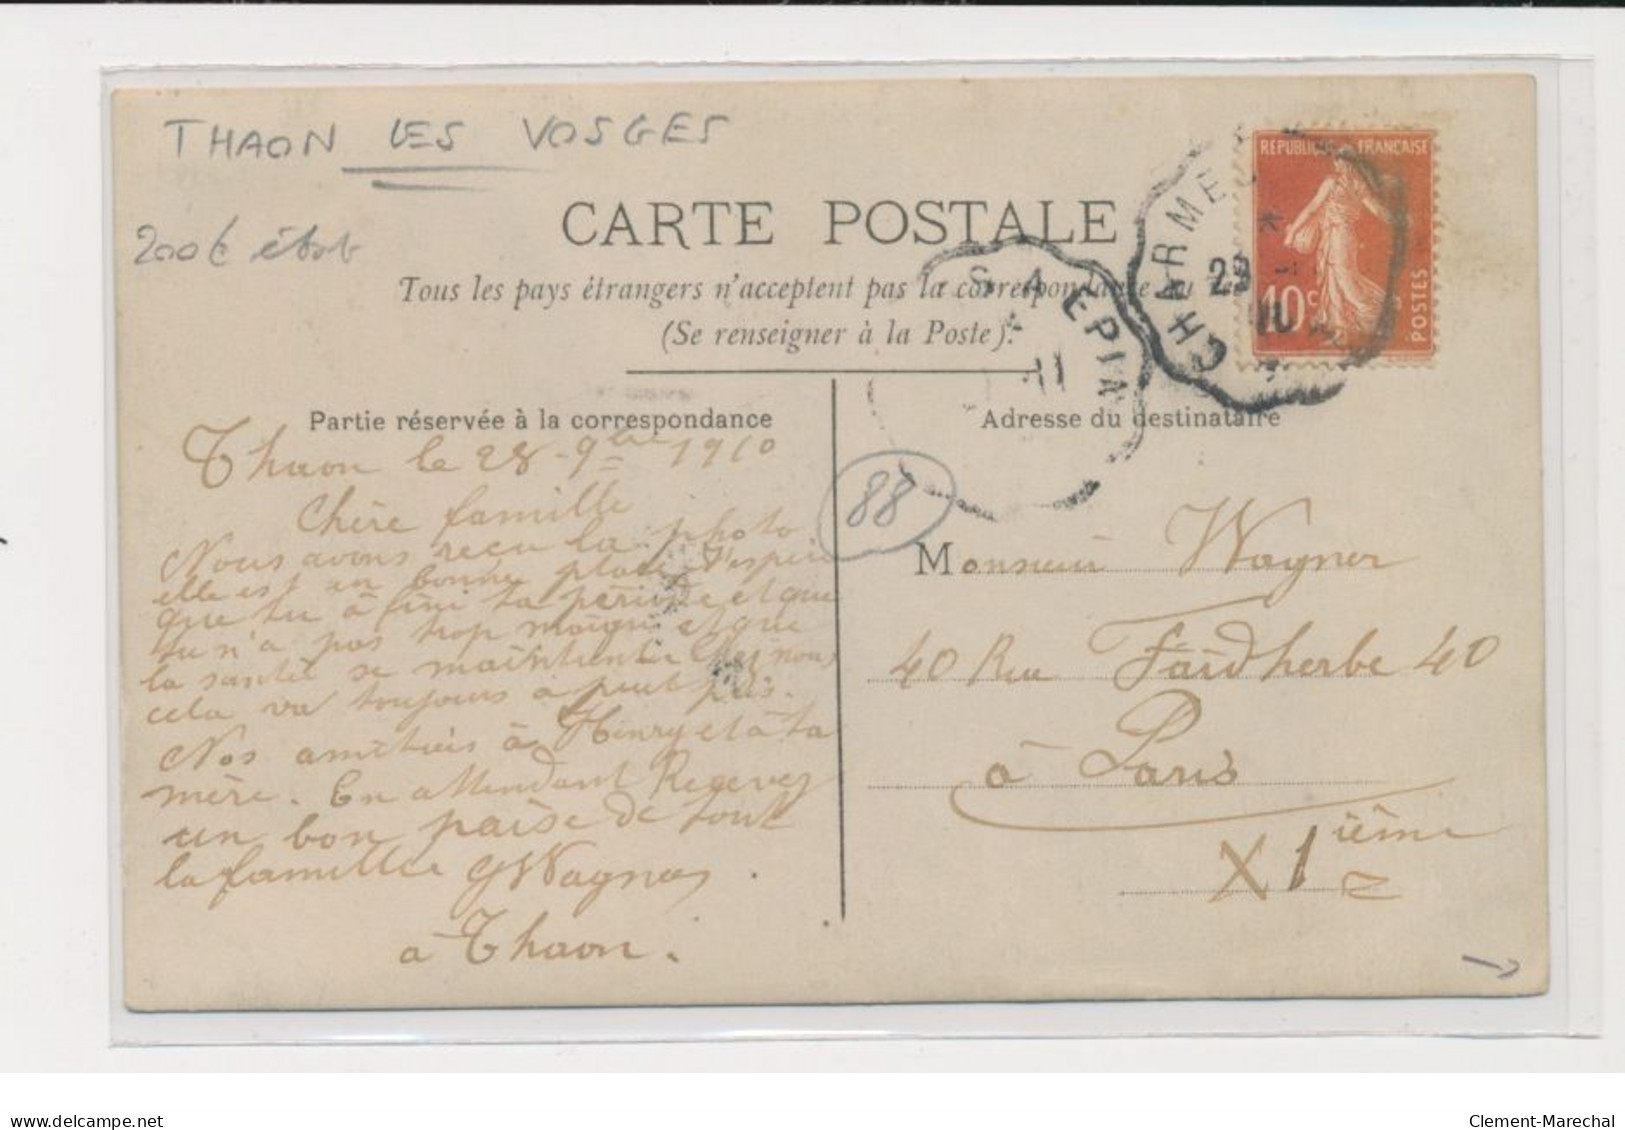 THAON LES VOSGES
200€
CARTE POSTALE
Tous les pays étrangers n'acceptent pas la correspondance au
(Se renseigner à la Poste).
REPUBLIQUE FRANÇAISE
10c
POSTES
CHARMES
29
S A EPIN
11
Partie réservée à la correspondance
Adresse du destinataire
Thaon le 28-9bre 1910
Chère famille
Nous avons reçu la photo
elle est en bonne place J'espère
que tu à fini ta période et que
tu n'a pas trop maigri et que
la santé se maintient Chez nous
cela va toujours a peut près.
Nos amitiés à Henry et à ta
mère. En attendant Recevez
un bon baisé de tout
la famille Wagner
à Thaon.
88
Monsieur Wagner
40 Rue Faidherbe 40
à Paris
XIième
www.delcampe.net
Clement-Marechal